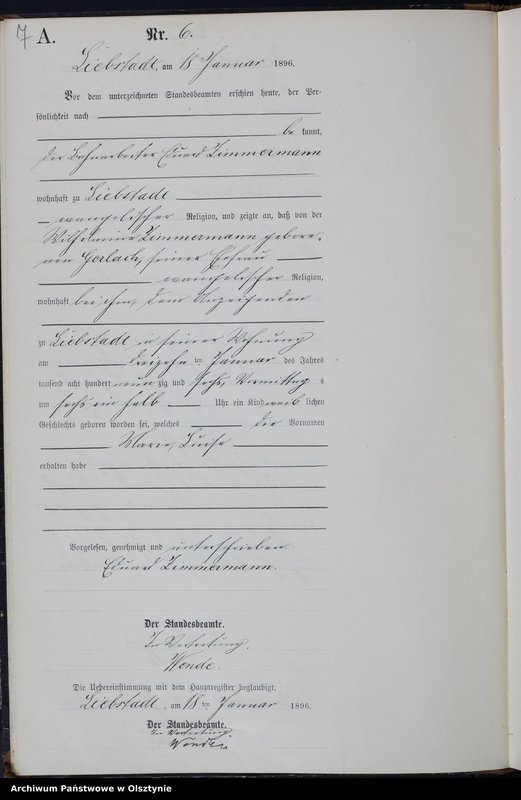 7
A. Nr. 6.
Liebstadt, am 18 Januar 1896.
Vor dem unterzeichneten Standesbeamten erschien heute, der Per-
sönlichkeit nach
be kannt,
der Bahnarbeiter Eduard Zimmermann
wohnhaft zu Liebstadt
evangelischer Religion, und zeigte an, daß von der
Wilhelmine Zimmermann gebore-
nen Gerlach, seiner Ehefrau
evangelischer Religion,
wohnhaft bei ihm, dem Anzeigenden
zu Liebstadt in seiner Wohnung
am dreizehn ten Januar des Jahres
tausend acht hundert neun zig und sechs, Vormittag s
um sechs ein halb Uhr ein Kind weib lichen
Geschlechts geboren worden sei, welches die Vornamen
Marie, Luise
erhalten habe
Vorgelesen, genehmigt und unterschrieben.
Eduard Zimmermann.
Der Standesbeamte.
In Vertretung.
Wende.
Die Uebereinstimmung mit dem Hauptregister beglaubigt.
Liebstadt, am 18 ten Januar 1896.
Der Standesbeamte.
In Vertretung.
Wende.
Archiwum Państwowe w Olsztynie